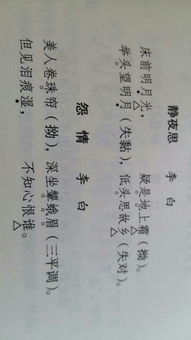 静夜思
李白
床前明月光，疑是地上霜（拗）。
举头望明月（失黏），低头思故乡（失对）。
怨情
李白
美人卷珠帘（拗），深坐颦蛾眉（三平调）。
但见泪痕湿，不知心恨谁。